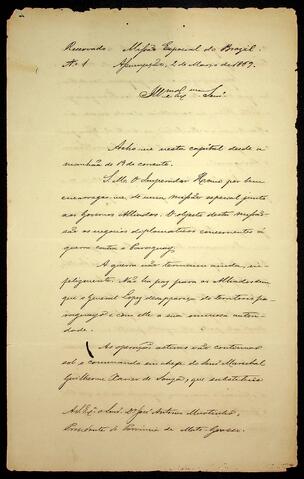 Reservado. Missão Especial do Brazil.
N. 1 Assumpção, 2 de Março de 1869.
Illmo e Exmo Snr.
Acho-me nesta capital desde a
manhãa de do corrente.
S. M. O Imperador Houve por bem
encarregar-me de uma missão especial junto
aos Governos Alliados. O objecto desta missão
são os negocios diplomaticos concernentes á
guerra contra o Paraguay.
A guerra não terminou ainda, in-
felizmente. Não ha paz para os Alliados sem
que o General Lopez desappareça do territorio pa-
raguayo e com elle a sua omnimoda autori-
dade.
As operações activas vão continuar
sob o commando em chefe do Snr Marechal
Guilherme Xavier de Souza, que substitue
A S. Exª o Snr. Dr José Antonio Murtinho,
Presidente da Provincia de Mato-Grosso.